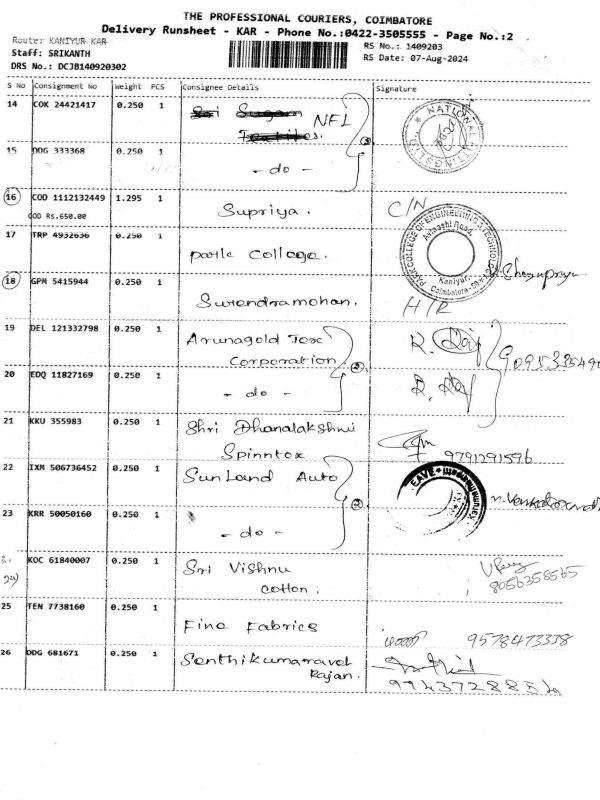 THE PROFESSIONAL COURIERS, COIMBATORE
Delivery Runsheet - KAR - Phone No.:0422-3505555 - Page No.:2
Route: KANIYUR KAR
RS No.: 1409203
Staff: SRIKANTH
RS Date: 07-Aug-2024
DRS No.: DCJB140920302
S No Consignment No Weight PCS Consignee Details Signature
14 COK 24421417 0.250 1 Sri Sugam NFL
Textiles.
NATIONAL FITTINGS
15 DDG 333368 0.250 1 - do -
16 COD 1112132449 1.295 1 Supriya. C/N
COD Rs.650.00
17 TRP 4932636 0.250 1 parle College.
PARK COLLEGE OF ENGINEERING & TECHNOLOGY
Avinashi Road,
Kaniyur,
Coimbatore-59
18 GPM 5415944 0.250 1 Surendramohan. H/R
19 DEL 121332798 0.250 1 Arunagold Tex R. Raj
Corporation
20 EDQ 11827169 0.250 1 - do - R. Raj
21 KKU 355983 0.250 1 Shri Dhanalakshmi
Spinntex 9791291596
22 IXM 506736452 0.250 1 SunLand Auto
23 KRR 50050160 0.250 1 - do -
KOC 61840007 0.250 1 Sri Vishnu
cotton. 8056358565
25 TEN 7738160 0.250 1
Fine Fabrics 9578473338
26 DDG 681671 0.250 1 Senthikumaravel
Rajan. 9943728854